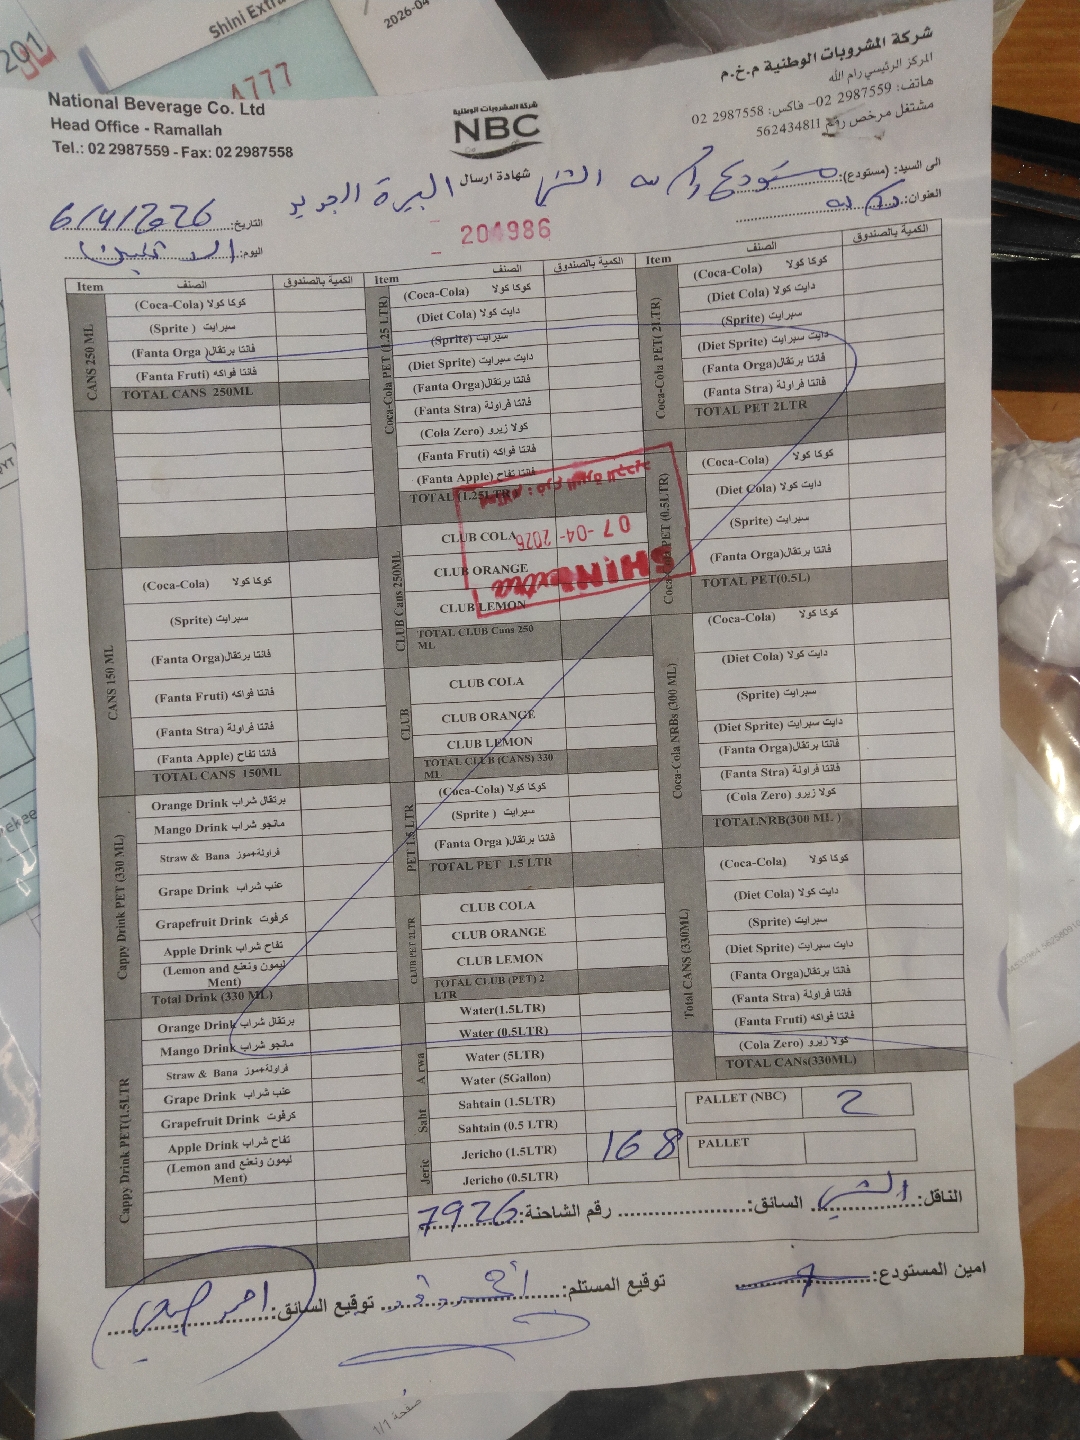 201
Shini Extra
2026-04
4777
National Beverage Co. Ltd
Head Office - Ramallah
Tel.: 02 2987559 - Fax: 02 2987558
شركة المشروبات الوطنية
NBC
شركة المشروبات الوطنية م.خ.م
المركز الرئيسي رام الله
هاتف: 2987559 02– فاكس: 2987558 02
مشتغل مرخص رقم 562434811
شهادة ارسال
الى السيد: (مستودع): مستودع رام الله
البيرة الجديد
العنوان: رام الله
التاريخ: 6/4/2026
اليوم: الاثنين
204986
Item الصنف الكمية بالصندوق
CANS 250 ML
(Coca-Cola) كوكا كولا
(Sprite ) سبرايت
(Fanta Orga) فانتا برتقال
(Fanta Fruti) فانتا فواكه
TOTAL CANS 250ML
CANS 150 ML
(Coca-Cola) كوكا كولا
(Sprite) سبرايت
(Fanta Orga) فانتا برتقال
(Fanta Fruti) فانتا فواكه
(Fanta Stra) فانتا فراولة
(Fanta Apple) فانتا تفاح
TOTAL CANS 150ML
Cappy Drink PET (330 ML)
Orange Drink برتقال شراب
Mango Drink مانجو شراب
Straw & Bana فراولة+موز
Grape Drink عنب شراب
Grapefruit Drink كرفوت
Apple Drink تفاح شراب
(Lemon and ليمون ونعنع
Ment)
Total Drink (330 ML)
Cappy Drink PET(1.5LTR
Orange Drink برتقال شراب
Mango Drink مانجو شراب
Straw & Bana فراولة+موز
Grape Drink عنب شراب
Grapefruit Drink كرفوت
Apple Drink تفاح شراب
(Lemon and ليمون ونعنع
Ment)
Item الصنف الكمية بالصندوق
Coca-Cola PET (1.25 LTR)
(Coca-Cola) كوكا كولا
(Diet Cola) دايت كولا
(Sprite) سبرايت
(Diet Sprite) دايت سبرايت
(Fanta Orga) فانتا برتقال
(Fanta Stra) فانتا فراولة
(Cola Zero) كولا زيرو
(Fanta Fruti) فانتا فواكه
(Fanta Apple) فانتا تفاح
TOTAL (1.25LTR
CLUB Cans 250ML
CLUB COLA
CLUB ORANGE
CLUB LEMON
TOTAL CLUB Cans 250
ML
CLUB
CLUB COLA
CLUB ORANGE
CLUB LEMON
TOTAL CLUB (CANS) 330
ML
PET 1.5 LTR
(Coca-Cola) كوكا كولا
(Sprite ) سبرايت
(Fanta Orga) فانتا برتقال
TOTAL PET 1.5 LTR
CLUB PET 2LTR
CLUB COLA
CLUB ORANGE
CLUB LEMON
TOTAL CLUB (PET) 2
LTR
Arwa
Water(1.5LTR)
Water (0.5LTR)
Water (5LTR)
Water (5Gallon)
Saht
Sahtain (1.5LTR)
Sahtain (0.5 LTR)
Jeric
Jericho (1.5LTR) 168
Jericho (0.5LTR)
Item الصنف الكمية بالصندوق
Coca-Cola PET( 2LTR)
(Coca-Cola) كوكا كولا
(Diet Cola) دايت كولا
(Sprite) سبرايت
(Diet Sprite) دايت سبرايت
(Fanta Orga) فانتا برتقال
(Fanta Stra) فانتا فراولة
TOTAL PET 2LTR
PET (0.5LTR)
(Coca-Cola) كوكا كولا
(Diet Cola) دايت كولا
(Sprite) سبرايت
(Fanta Orga) فانتا برتقال
TOTAL PET(0.5L)
Coca-Cola NRBs (300 ML)
(Coca-Cola) كوكا كولا
(Diet Cola) دايت كولا
(Sprite) سبرايت
(Diet Sprite) دايت سبرايت
(Fanta Orga) فانتا برتقال
(Fanta Stra) فانتا فراولة
(Cola Zero) كولا زيرو
TOTALNRB(300 ML )
Total CANS (330ML)
(Coca-Cola) كوكا كولا
(Diet Cola) دايت كولا
(Sprite) سبرايت
(Diet Sprite) دايت سبرايت
(Fanta Orga) فانتا برتقال
(Fanta Stra) فانتا فراولة
(Fanta Fruti) فانتا فواكه
(Cola Zero) كولا زيرو
TOTAL CANs(330ML)
PALLET (NBC) 2
PALLET
استلام : فرع البيرة الجديد
07-04-2026
SHINI extra
الناقل: السائق: رقم الشاحنة: 7926
امين المستودع: توقيع المستلم: توقيع السائق:
صفحة 1/1